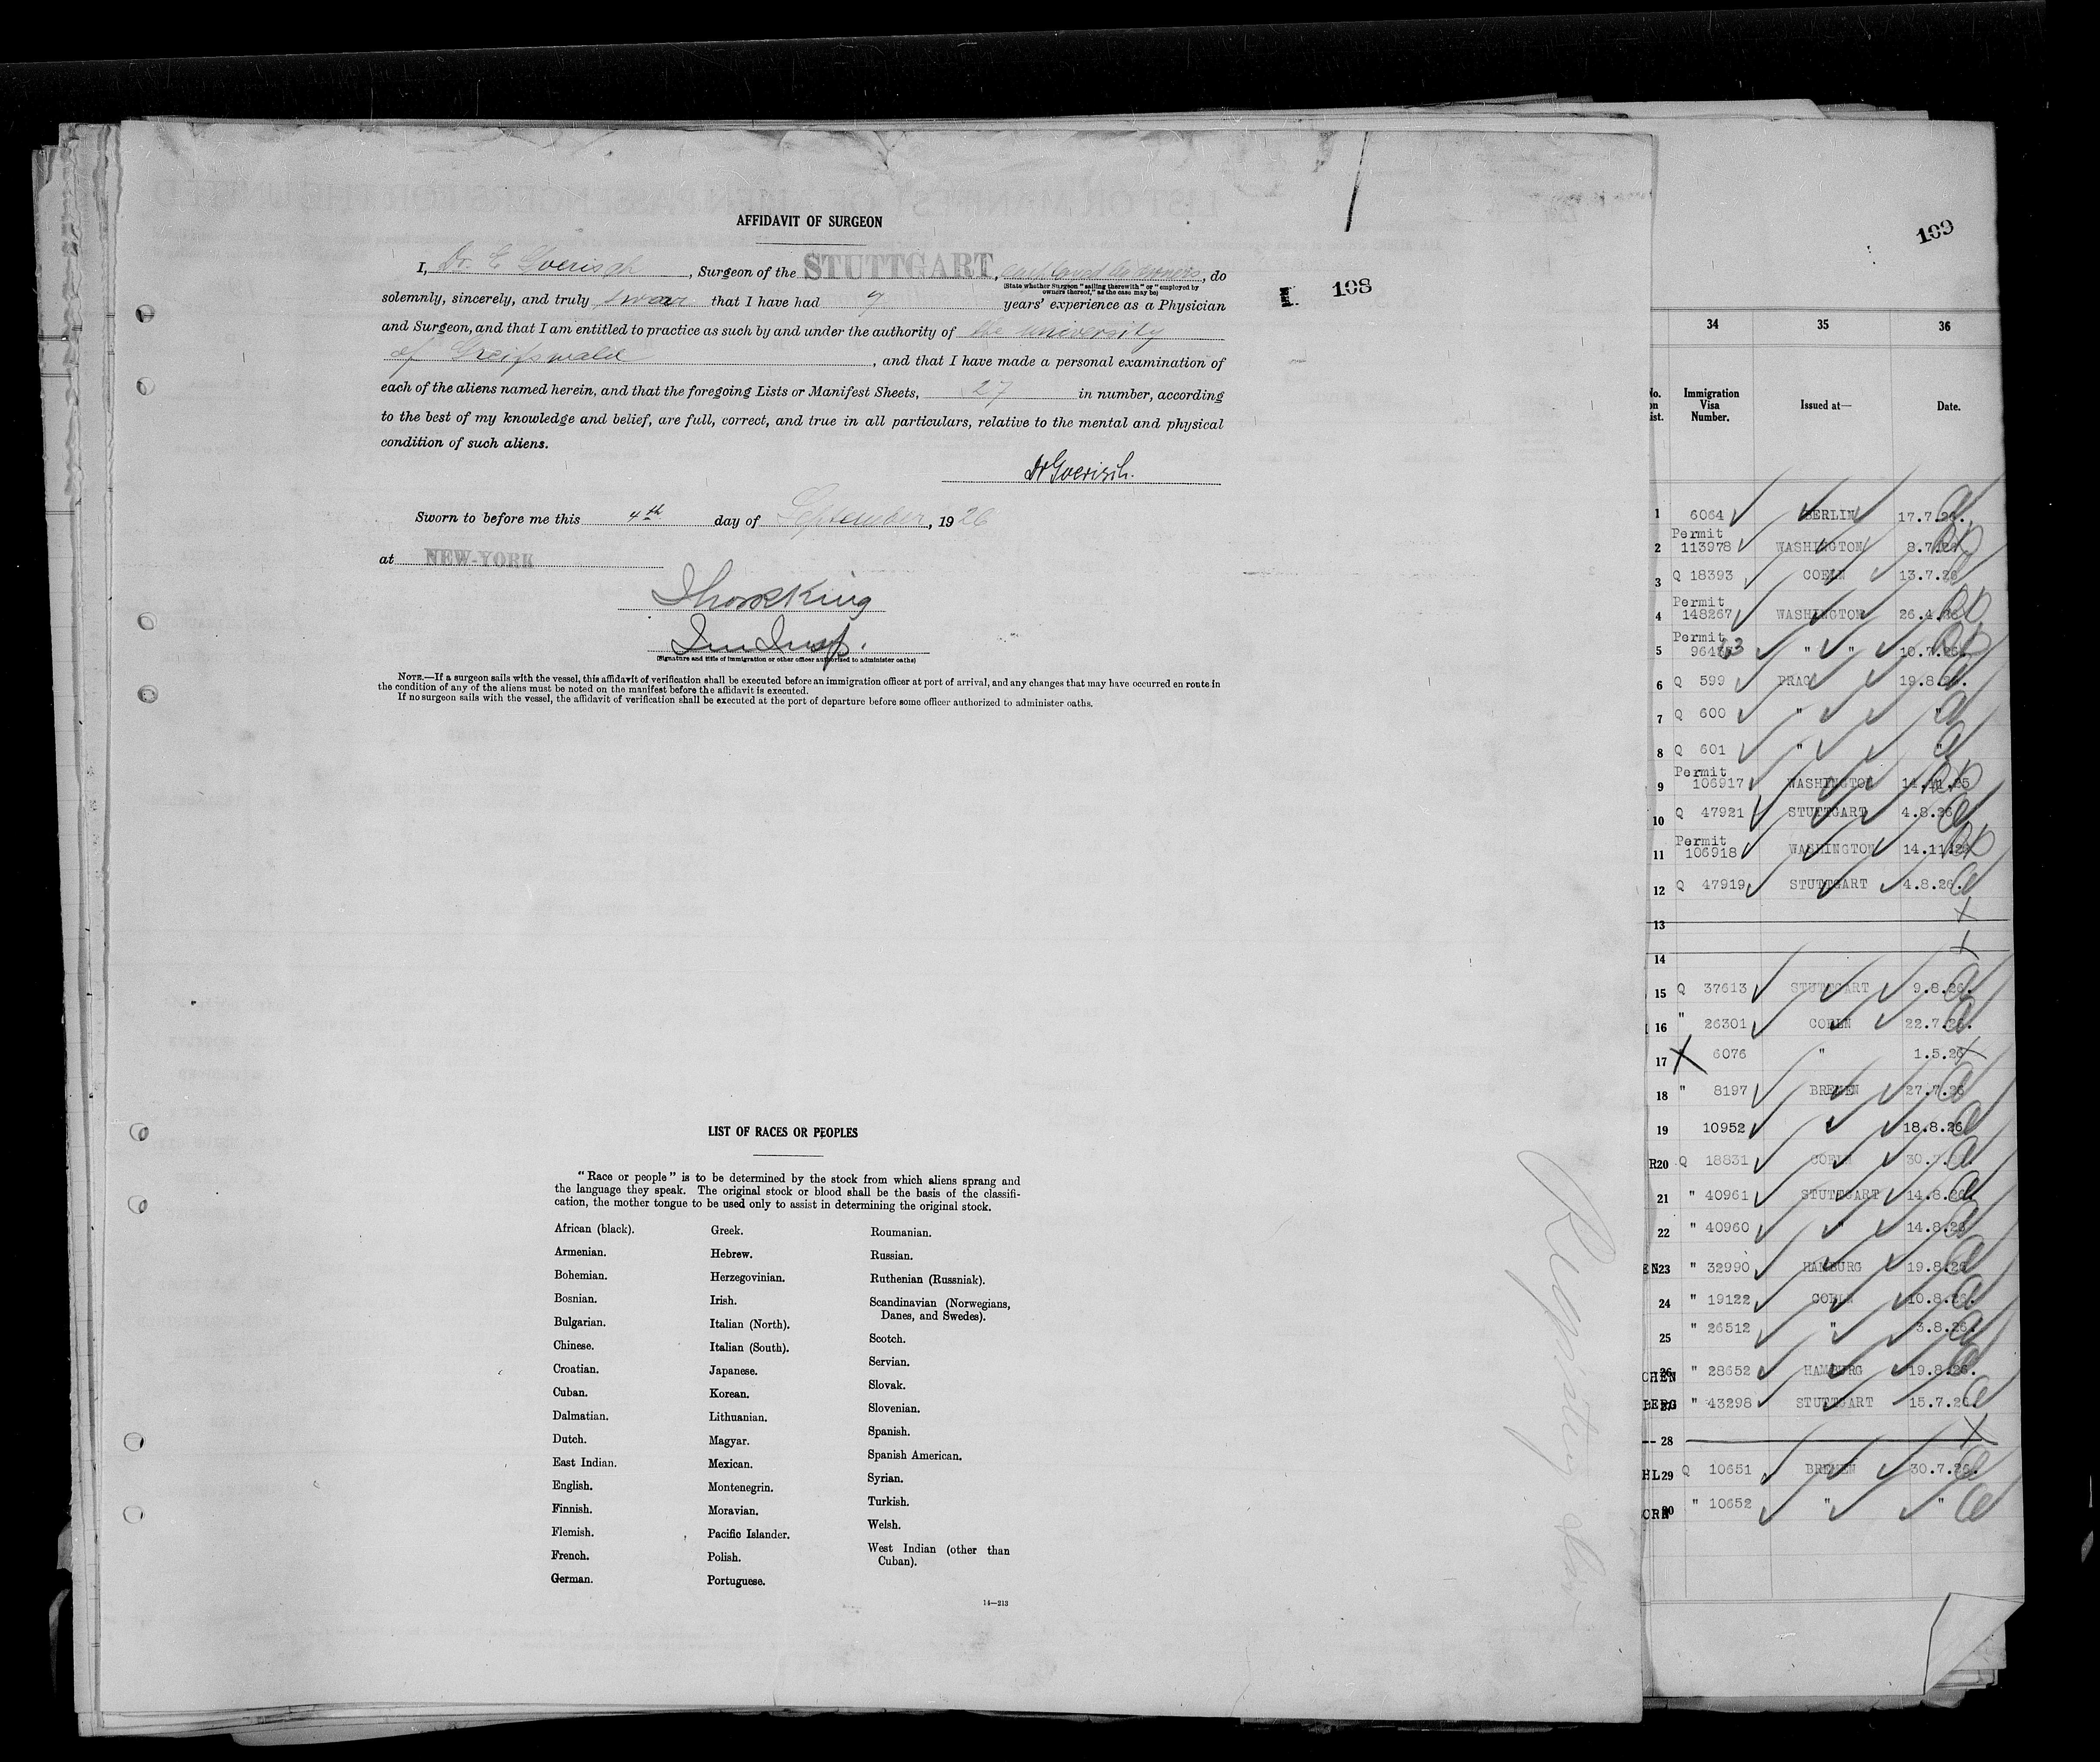 AFFIDAVIT OF SURGEON
I, Dr. E Goerisch, Surgeon of the STUTTGART, do
(State whether Surgeon "sailing therewith" or "employed by
owners thereof," as the case may be)
solemnly, sincerely, and truly swear that I have had 7 years' experience as a Physician
and Surgeon, and that I am entitled to practice as such by and under the authority of the university
of Greifswald, and that I have made a personal examination of
each of the aliens named herein, and that the foregoing Lists or Manifest Sheets, 27 in number, according
to the best of my knowledge and belief, are full, correct, and true in all particulars, relative to the mental and physical
condition of such aliens.
Dr Goerisch.
Sworn to before me this 4th day of September, 1926
at NEW-YORK
King
Imm Insp.
(Signature and title of immigration or other officer authorized to administer oaths)
NOTE.—If a surgeon sails with the vessel, this affidavit of verification shall be executed before an immigration officer at port of arrival, and any changes that may have occurred en route in
the condition of any of the aliens must be noted on the manifest before the affidavit is executed.
If no surgeon sails with the vessel, the affidavit of verification shall be executed at the port of departure before some officer authorized to administer oaths.
108
LIST OF RACES OR PEOPLES
"Race or people" is to be determined by the stock from which aliens sprang and
the language they speak. The original stock or blood shall be the basis of the classifi-
cation, the mother tongue to be used only to assist in determining the original stock.
African (black).
Armenian.
Bohemian.
Bosnian.
Bulgarian.
Chinese.
Croatian.
Cuban.
Dalmatian.
Dutch.
East Indian.
English.
Finnish.
Flemish.
French.
German.
Greek.
Hebrew.
Herzegovinian.
Irish.
Italian (North).
Italian (South).
Japanese.
Korean.
Lithuanian.
Magyar.
Mexican.
Montenegrin.
Moravian.
Pacific Islander.
Polish.
Portuguese.
Roumanian.
Russian.
Ruthenian (Russniak).
Scandinavian (Norwegians,
Danes, and Swedes).
Scotch.
Servian.
Slovak.
Slovenian.
Spanish.
Spanish American.
Syrian.
Turkish.
Welsh.
West Indian (other than
Cuban).
14—213
109
34 35 36
No.
on
ist.
Immigration
Visa
Number.
Issued at—
Date.
1 6064 BERLIN 17.7.26.
Permit
2 113978 WASHINGTON 8.7.26
3 Q 18393 COELN 13.7.26
Permit
4 148267 WASHINGTON 26.4.26
Permit
5 " " 10.7.26
6 Q 599 PRAG 19.8.26.
7 Q 600 " "
8 Q 601 " "
Permit
9 106917 WASHINGTON 14.11.25
10 Q 47921 STUTTGART 4.8.26
Permit
11 106918 WASHINGTON 14.11.
12 Q 47919 STUTTGART 4.8.26.
13
14
15 Q 37613 STUTTGART 9.8.26.
16 " 26301 COELN 22.7.26.
17 6076 " 1.5.26
18 " 8197 BREMEN 27.7.26
19 10952 18.8.26
R20 Q 18831 COELN 30.7.26.
21 " 40961 STUTTGART 14.8.26
22 " 40960 " 14.8.26
EN23 " 32990 HAMBURG 19.8.26
24 " 19122 COELN 10.8.26.
25 " 26512 " 3.8.26.
CHEN 26 " 28652 HAMBURG 19.8.26.
BERG 27 " 43298 STUTTGART 15.7.26
28
HL29 Q 10651 BREMEN 30.7.26.
ORN 30 " 10652 " "